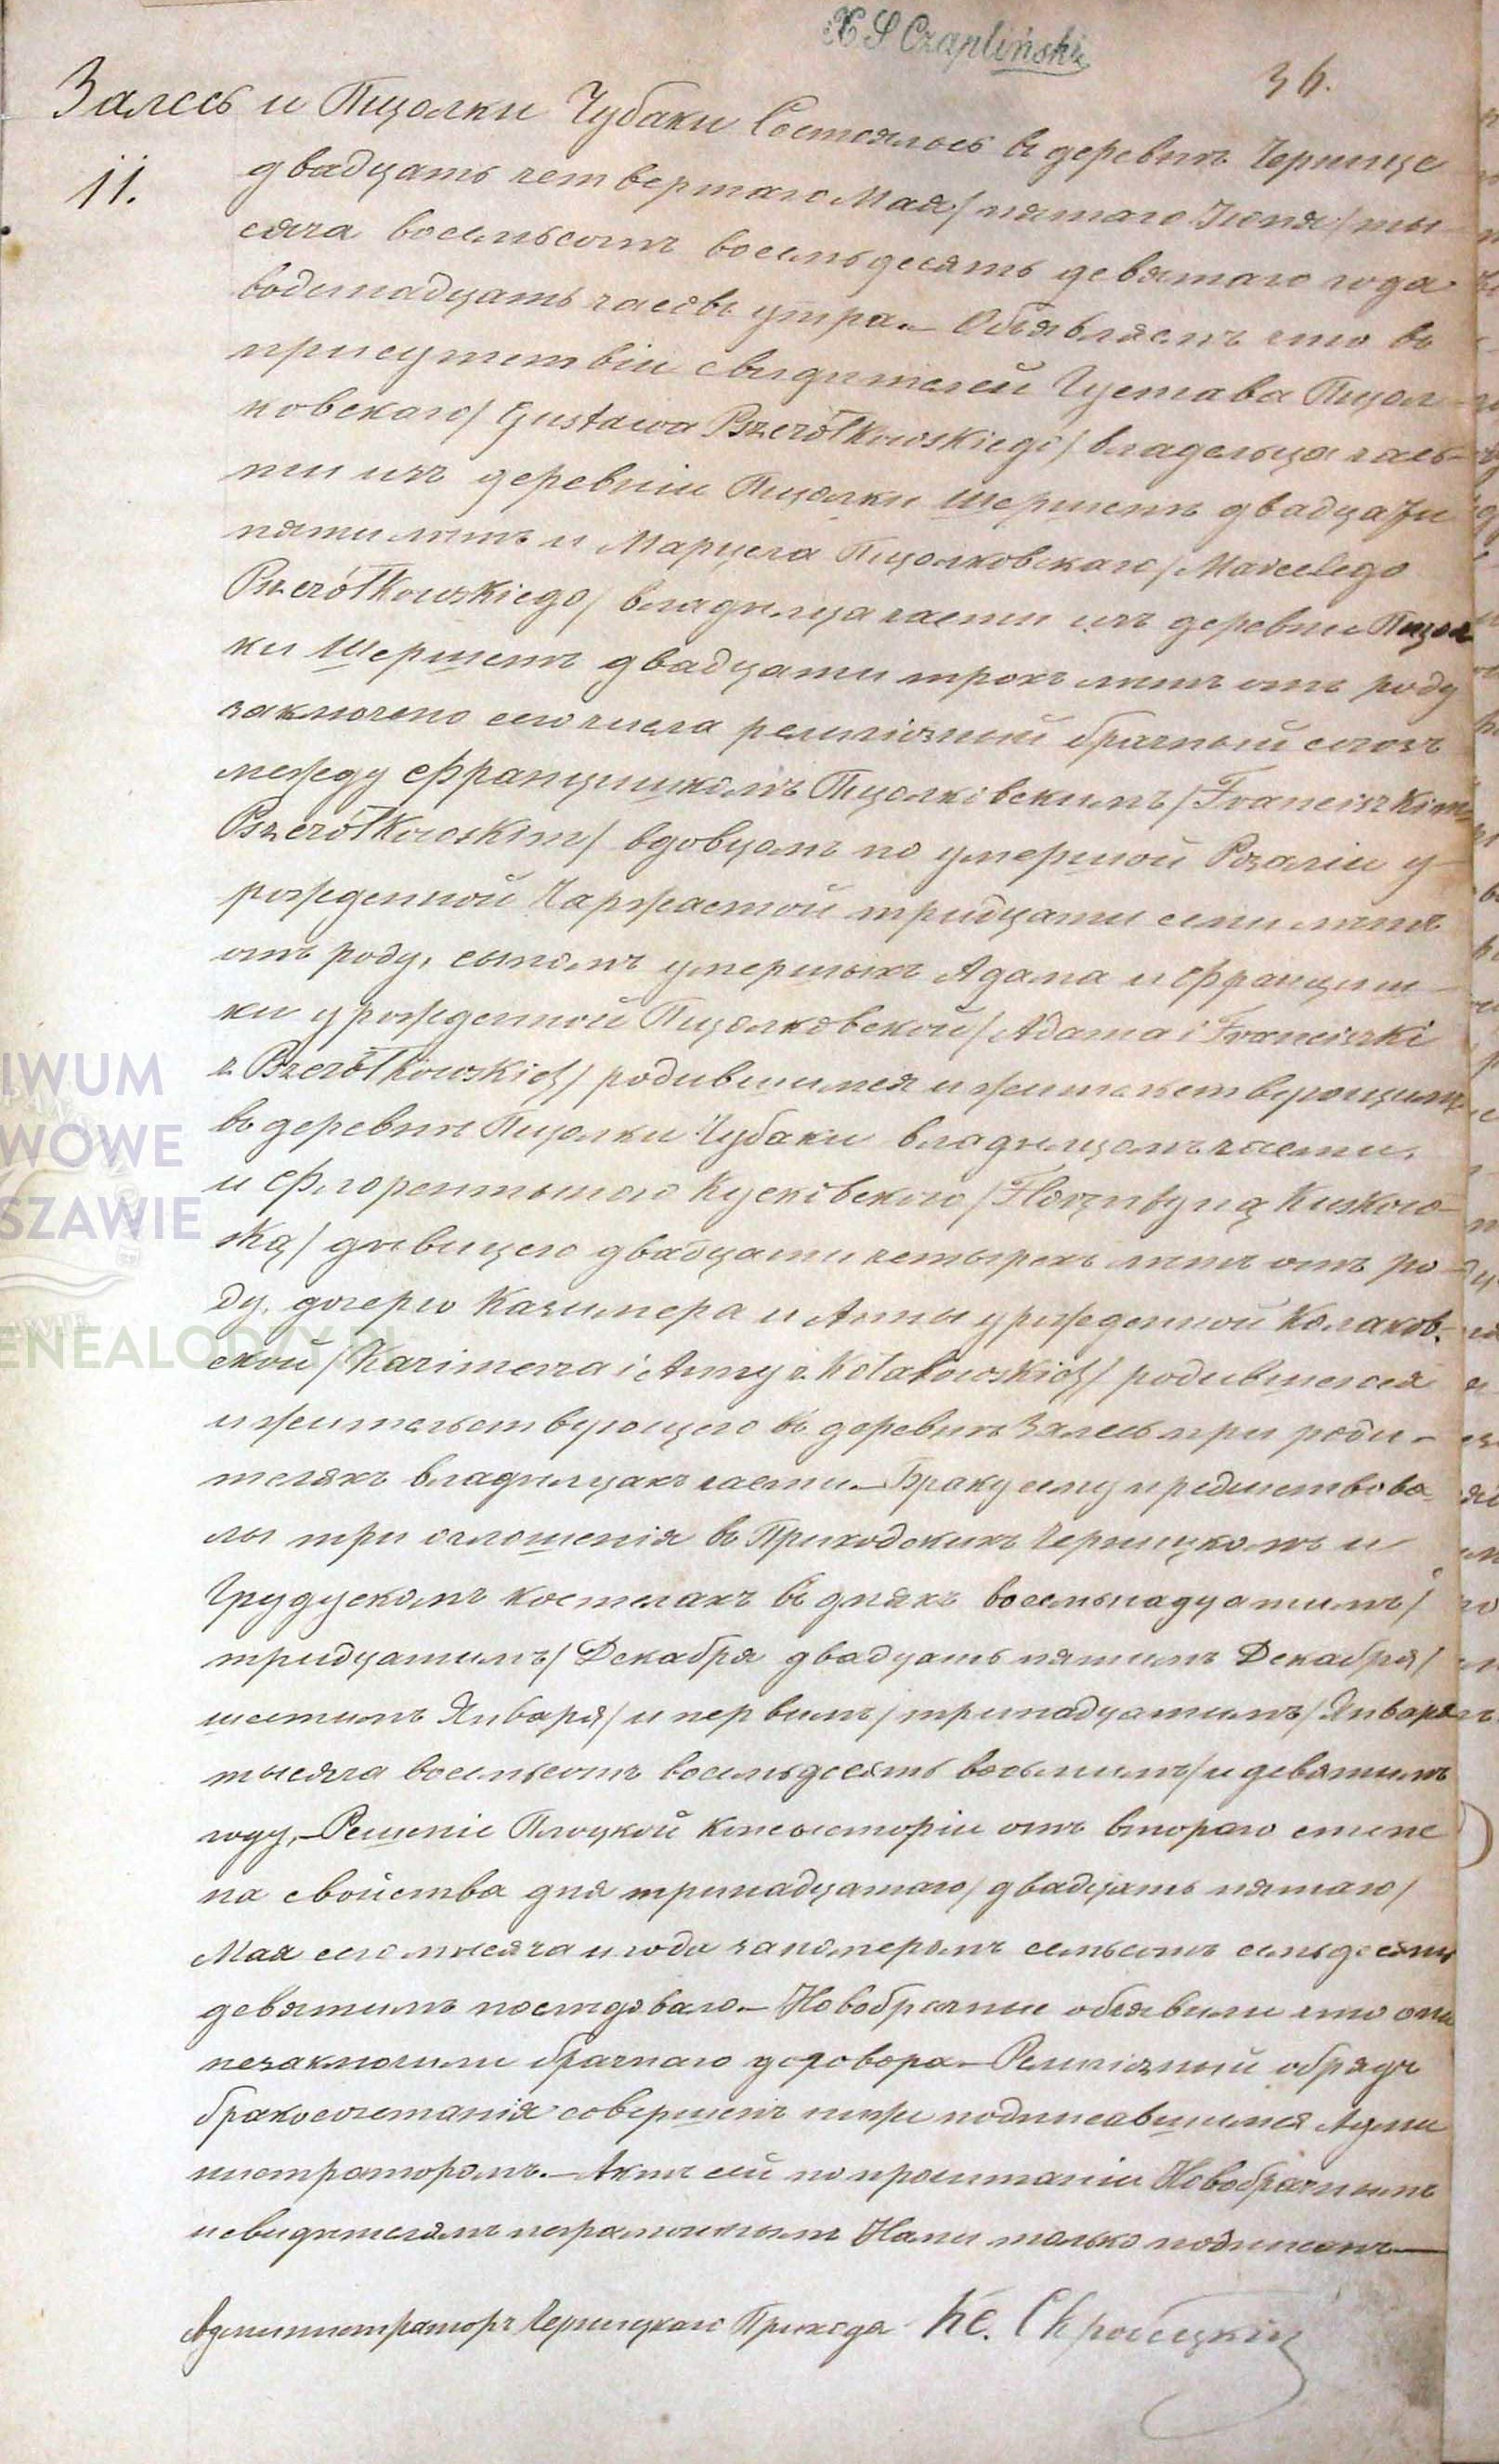 X S Czapliński
36.
Залесь и Пщолки Чубаки
11.
Состоялось въ деревнѣ Чернице
двадцать четвертаго Мая /пятаго Іюня/ ты-
сяча восемьсотъ восемьдесять девятаго года
водинадцать часовъ утра.— Объявляемъ что въ
присутствіи свидѣтелей Густава Пщол-
ковскаго/ Gustawa Pszczółkowskiego/ владельца час-
ти изъ деревніи Пщолки Шершенѣ двадцати
пяти лѣтъ и Марцела Пщолковскаго/ Marcelego
Pszczółkowskiego/ владѣльца части изъ деревни Пщол
ки Шершенѣ двадцати трохъ лѣтъ отъ роду
заключено сего числа религіозный брачный союзъ
между Францишкомъ Пщолковскимъ/ Franciszkiem
Pszczółkowskim/ вдовцомъ по умершой Розаліи у-
рожденной Чаржастой тридцати семи лѣтъ
отъ роду, сыномъ умершихъ Адама и Францишк-
ки урожденной Пщолковской/ Adama i Franciszki
z Pszczółkowskich/ родившимся и жительствующимъ
въ деревнѣ Пщолки Чубаки владѣльцомъ части.
и Флорентыною Кусковскою/ Florentyną Kuskow-
ską/ дѣвицею двадцати четырехъ лѣтъ отъ ро-
ду, дочерю Казимера и Анны урожденной Колаков-
ской/ Kazimerza i Anny z Kołakowskich/ родившеюся
и жительствующею въ деревнѣ Залесь при роди-
теляхъ владѣльцахъ части.— Браку сему предшествова-
лы три оглошенія въ Приходскихъ Черницкомъ и
Грудускомъ костелахъ въ дняхъ восемьнадцатимъ/
тридцатимъ/ Декабря двадцать пятимъ Декабря/
шестимъ Января/ и первимъ/ тринадцатимъ/ Января
тысяча восемьсотъ восемьдесять восьмимъ/и девятимъ
году,— Решеніе Плоцкой Консысторіи отъ второго степе
на свойства дня тринадцатаго/ двадцать пятаго/
Мая сего мѣсяча и года заномеромъ семьсотъ семьдесять
девятимъ послѣдовало.— Новобрачные объявили что они
незаключили брачнаго договора.— Религіозный обрядъ
бракосочетанія совершенъ ниже подписавшимся Адми
нистраторомъ.— Актъ сей по прочитаніи Новобрачнымъ
и свидѣтелямъ неграмотнымъ Нами только подписанъ—
Администраторъ Черницкаго Прихода Кс.